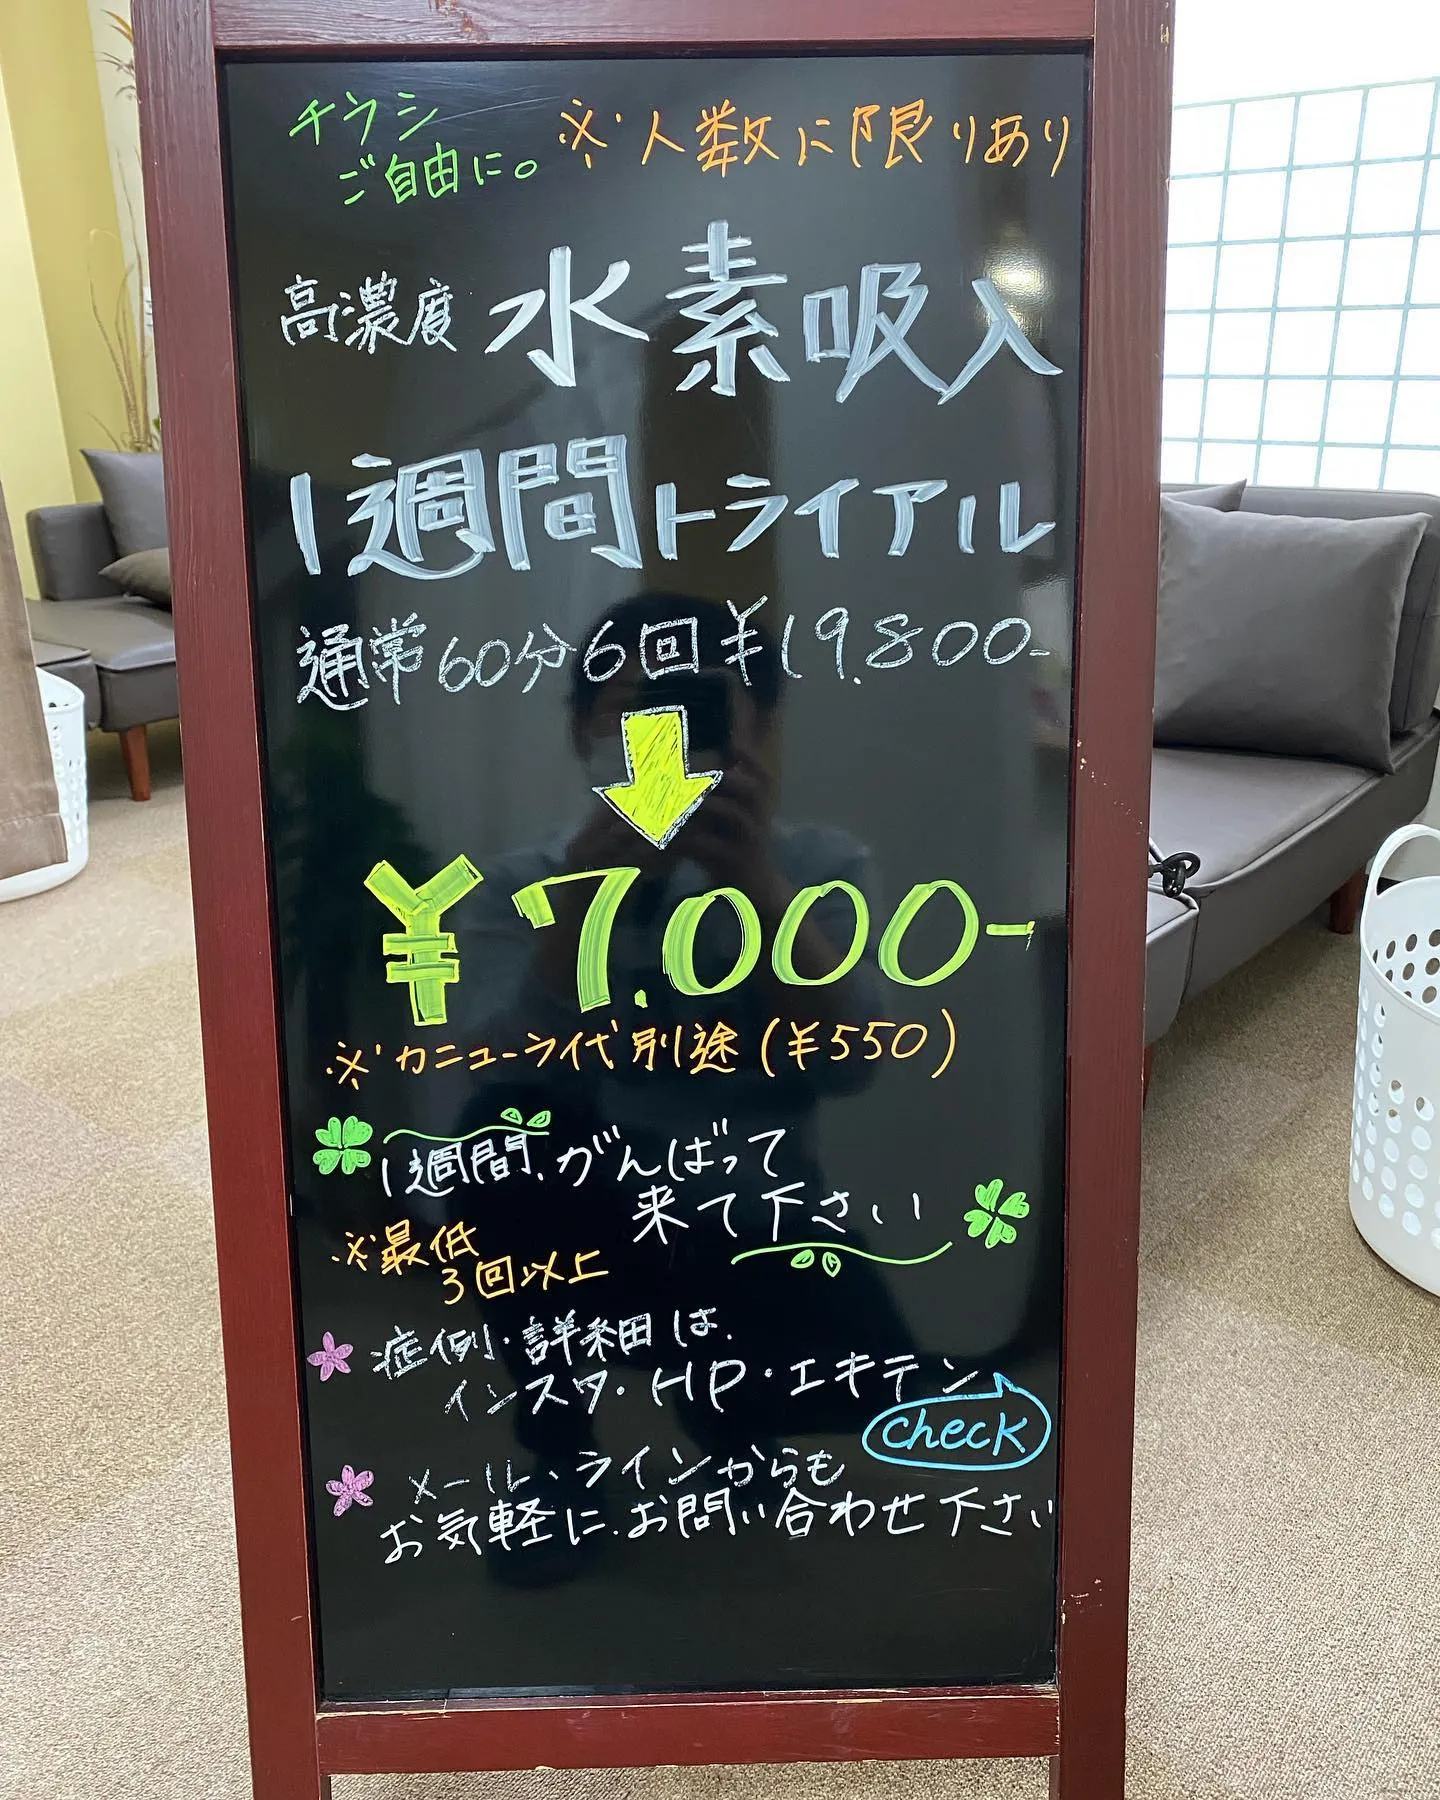 チラシ
ご自由に。
※人数に限りあり
高濃度 水素吸入
1週間トライアル
通常60分6回¥19.800-
¥7.000-
※カニューラ代別途(¥550)
1週間、がんばって
来て下さい
※最低
3回以上
症例・詳細は、
インスタ・HP・エキテン
check
メール、ラインからも
お気軽に、お問い合わせ下さい